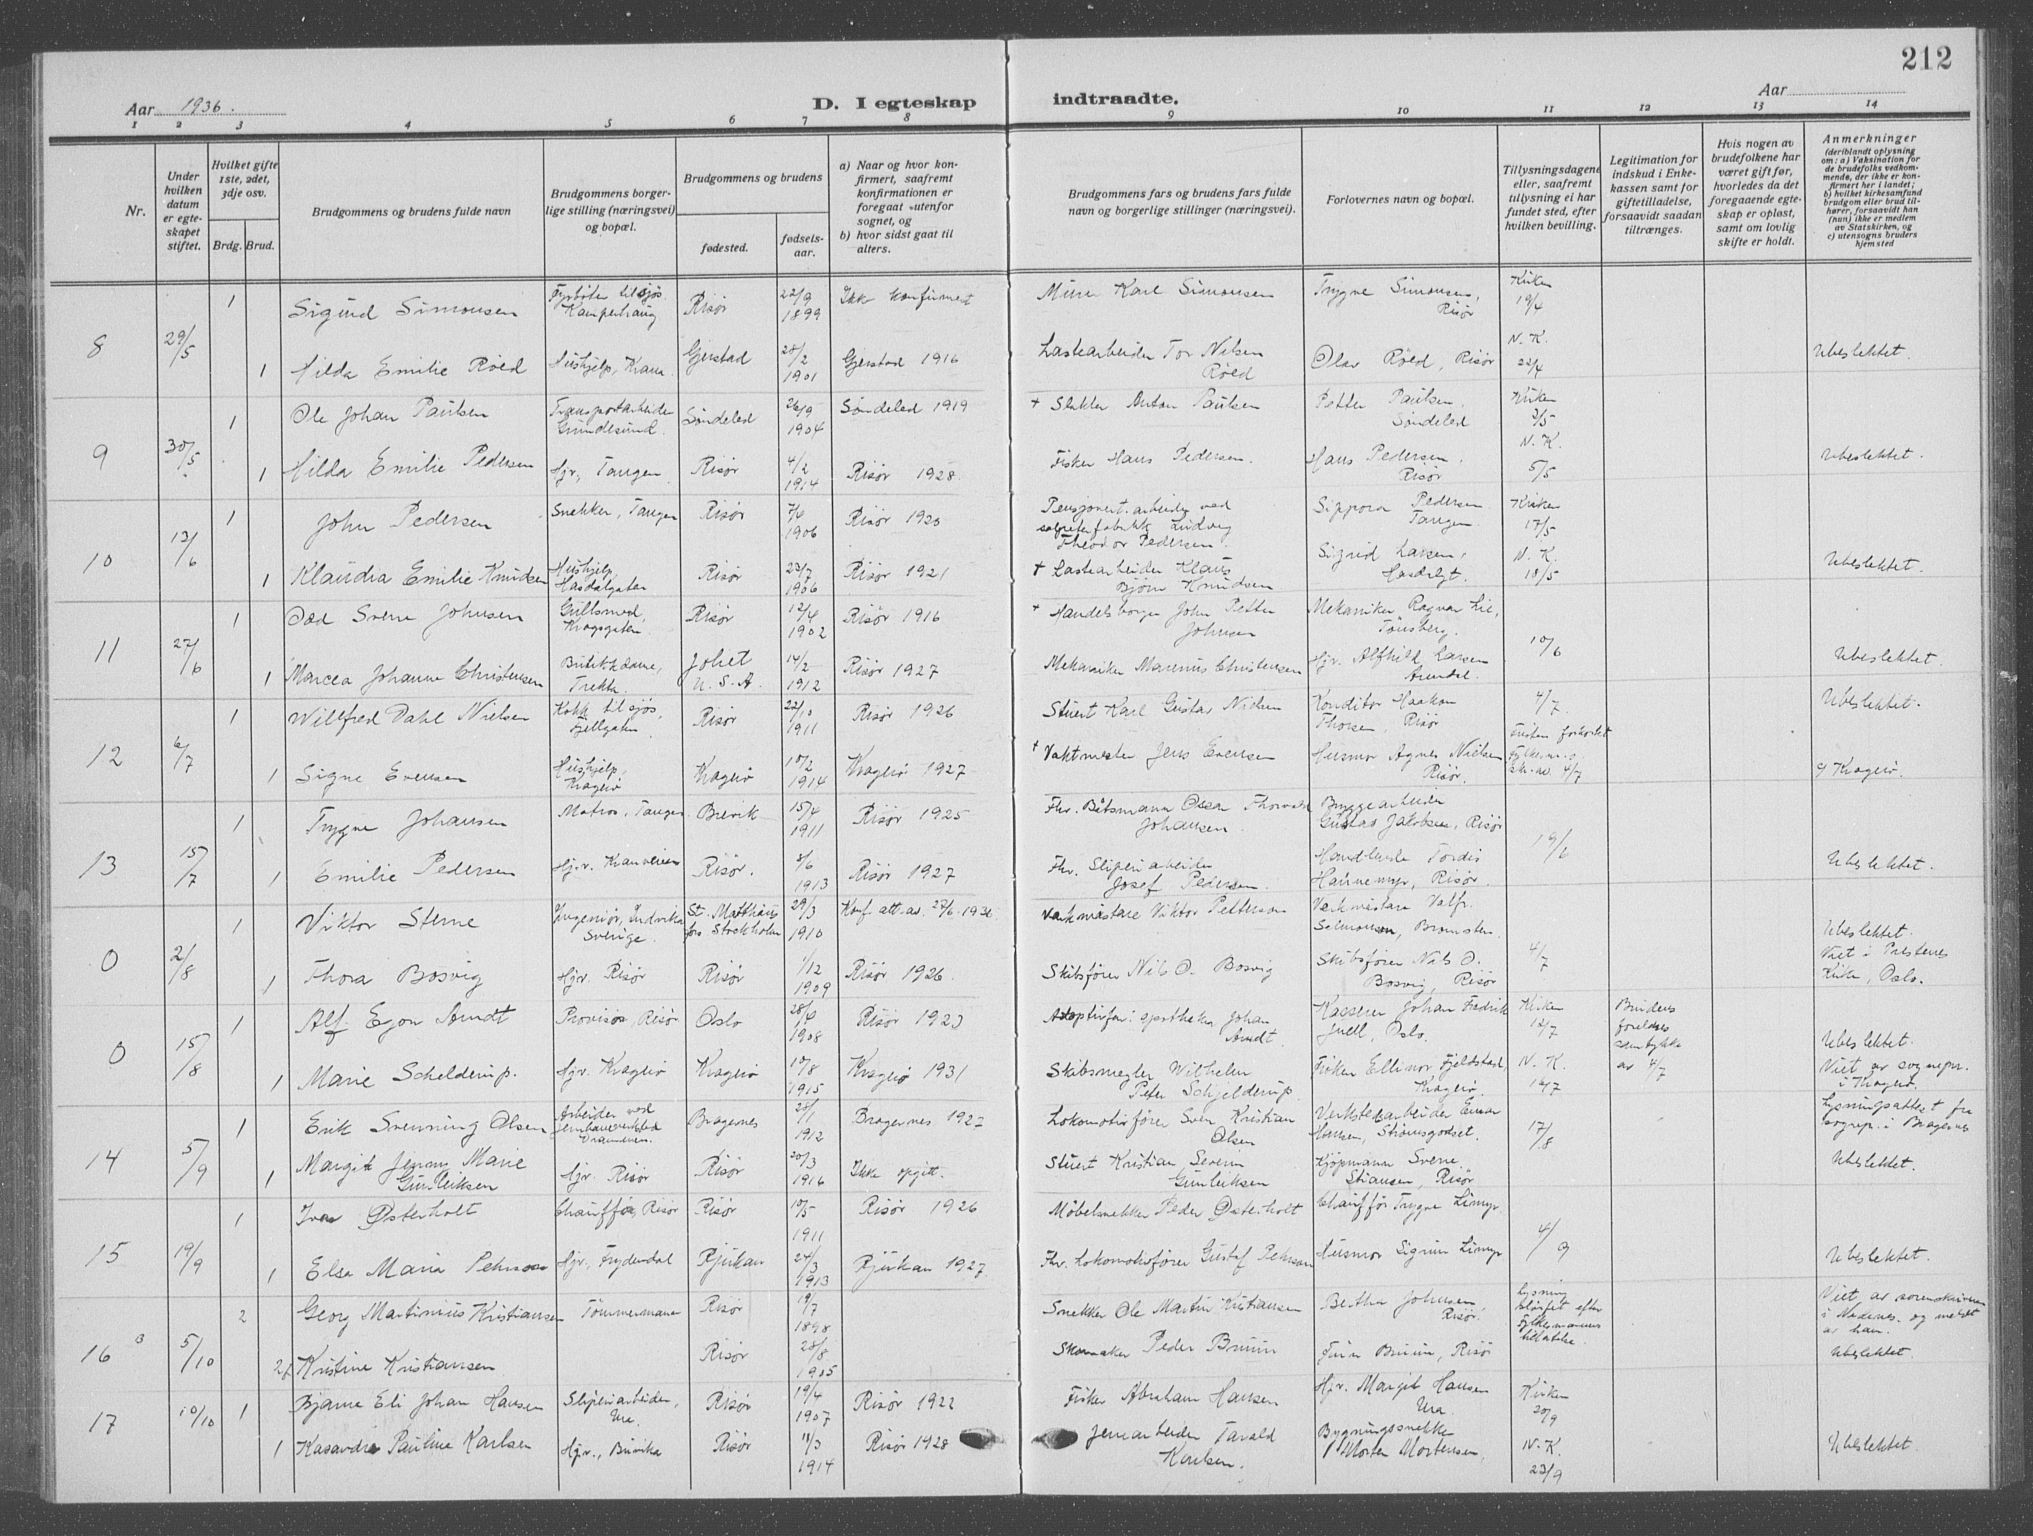 212
Aar 1936.
D. I egteskap indtraadte.
Aar
1 2 3 4 5 6 7 8 9 10 11 12 13 14
Nr.
Under hvilken datum er egteskapet stiftet.
Hvilket gifte 1ste, 2det, 3dje osv.
Brdg. Brud.
Brudgommens og brudens fulde navn
Brudgommens borgerlige stilling (næringsvei) og bopæl.
Brudgommens og brudens
fødested.
fødselsaar.
a) Naar og hvor konfirmert, saafremt konfirmationen er foregaat utenfor sognet, og
b) hvor sidst gaat til alters.
Brudgommens fars og brudens fars fulde navn og borgerlige stillinger (næringsvei).
Forlovernes navn og bopæl.
Tillysningsdagene eller, saafremt tillysning ei har fundet sted, efter hvilken bevilling.
Legitimation for indskud i Enkekassen samt for giftetilladelse, forsaavidt saadan tiltrænges.
Hvis nogen av brudefolkene har været gift før, hvorledes da det foregaaende egteskap er opløst, samt om lovlig skifte er holdt.
Anmerkninger
(deriblandt oplysning om: a) Vaksination for de brudefolks vedkommende, der ikke er konfirmert her i landet; b) hvilket kirkesamfund brudgom eller brud tilhører, forsaavidt han (hun) ikke er medlem av Statskirken, og c) utensogns bruders hjemsted
8 29/5
1 Sigurd Simonsen Fyrbøter til sjøs Kamperhaug Risør 22/9 1899 Ikke konfirmert Murer Karl Simonsen Trygve Simonsen, Risør Kirken 19/4
1 Hilda Emilie Røed Hushjelp, Krana Gjerstad 28/2 1901 Gjerstad 1916 Lastearbeider Tor Nilsen Røed Olav Røed, Risør N. K. 22/4 Ubeslektet.
9 30/5
1 Ole Johan Paulsen Transportarbeider Grundesund. Søndeled 26/9 1904 Søndeled 1919 + Slakter Anton Paulsen Petter Paulsen. Søndeled Kirken 3/5
1 Hilda Emilie Pedersen Hjv, Tangen Risør 4/2 1914 Risør 1928. Fisker Hans Pedersen. Hans Pedersen, Risør N. K. 5/5 Ubeslektet.
10 13/6
1 John Pedersen Snekker, Tangen Risør 7/6 1906 Risør 1920 Pensjonert arbeider ved salpeterfabrikk Ludvig Theodor Pedersen. Sippora Pedersen Tangen Kirken 17/5
1 Klaudia Emilie Knudsen Hushjelp, Hasdalgaten Risør 23/7 1906 Risør 1921 + Lastearbeider Klaus Bjørn Knudsen Sigrid Larsen, Hasdalgt. N. K. 18/5 Ubeslektet.
11 27/6
1 Odd Sverre Johnsen Gullsmed, Kragsgaten Risør 12/4 1902 Risør 1916 + Handelsborger John Petter Johnsen Mekaniker Ragnar Lie, Tønsberg.
1 Marcea Johanne Christensen Butikkdame, Trekta. Joliet U. S. A. 14/2 1912 Risør 1927 Mekaniker Marenus Christensen Hjv. Alfhild Larsen Arendal. 10/6 Ubeslektet.
12 6/7
1 Willfred Dahl Nielsen Kokk til sjøs, Fjellgaten Risør 22/10 1911 Risør 1926 Stuert Karl Gustav Nielsen Konditor Haakon Thorsen, Risør 4/7. Ubeslektet.
1 Signe Evensen Hushjelp, Kragerø Kragerø 10/2 1914 Kragerø 1927 + Vaktmester Jens Evensen Husmor Agnes Nielsen Risør. Fristen forkortet 4/7 Kragerø.
13 15/7
1 Trygve Johansen Matros, Tangen Brevik 15/4 1911 Risør 1925 Fhv. Båtsmann Oscar Thorvald Johansen. Bryggearbeider Gustav Jakobsen, Risør
1 Emilie Pedersen Hjv. Kranveien Risør. 8/6 1913 Risør 1927 Fhv. Sliperiarbeider Josef Pedersen. Tordis Hannemyr, Risør. 19/6 Ubeslektet.
0 2/8
1 Viktor Sterne Ingeniør, Ludvika Sverige. St. Matthäus förs. Stockholm 29/3 1910 Konf. att. av 27/6-1936. Verkmästare Viktor Petterson Verkmästare Valfr. Salmonson, Bromsten.
1 Thora Bosvig Hjv. Risør Risør 1/12 1909 Risør 1926. Skibsfører Nils O. Bosvig Skibsfører Nils O. Bosvig, Risør 4/7 Ubeslektet. Viet i Prestenes Kirke, Oslo.
0 15/8
1 Alf Egon Arndt Provisor, Risør Oslo 28/6 1908 Risør 1923 Adoptivfar: apotheker Johan Arndt. Kasserer Johan Fredrik Juell, Oslo. Kirken 12/7 Brudens foreldres samtykke av 4/7
1 Marie Schelderup. Hjv. Kragerø Kragerø 10/8 1915 Kragerø 1931 Skibsmegler Wilhelm Peter Schjelderup Frøken Ellinor Fjeldstad, Kragerø. N. K. 14/7 Ubeslektet. Viet av sognepr. i Kragerø.
14 5/9
1 Erik Svenning Olsen Arbeider ved jernbaneverksted Drammen. Bragernes 28/1 1912 Bragernes 1927 Lokomotivfører Sven Kristian Olsen Verkstedarbeider Einar Hansen, Strømsgodset. 17/8 Lysningsattest fra sognepr. i Bragernes
1 Margit Jenny Marie Gunleiksen Hjv. Risør Risør 20/3 1916 Ikke opgitt. Stuert Kristian Severin Gunleiksen Kjøpmann Sverre Stiansen, Risør Ubeslektet.
15 19/9
1 Ivar Østerholt Chauffør, Risør Risør 10/5 1911 Risør 1926 Møbelsnekker Peder Østerholt Chauffør Trygve Limyr.
1 Elsa Maria Pehrson Hjv., Frydendal Rjukan 24/3 1913 Rjukan 1927. Fhv. Lokomotivfører Gustaf Pehrson Husmor Sigrun Limyr 4/9 Ubeslektet.
16 5/10
2 Georg Martinius Kristiansen Tømmermann Risør 19/7 1898 Snekker Ole Martin Kristiansen Bertha Johnsen, Risør. Lysning sløifet efter fylkesmannens tillatelse. Viet av sorenskriveren i Nedenes og meldt av ham.
2 Kristine Kristiansen Risør 28/8 1905 Skomaker Peder Bruun Bruun, Risør Ubeslektet.
17 10/10
1 Bjarne Eli Johan Hansen Sliperiarbeider, Ura. Risør 19/4 1907 Risør 1922 Fisker Abraham Hansen Hjv. Margit Hansen Ura. Kirken 20/9
1 Kasandra Pauline Karlsen Hjv., Buvika Risør 18/3 1914 Risør 1928 Jernarbeider Tarald Karlsen. Bygningssnekker Morten Mortensen, N. K. 23/9 Ubeslektet.